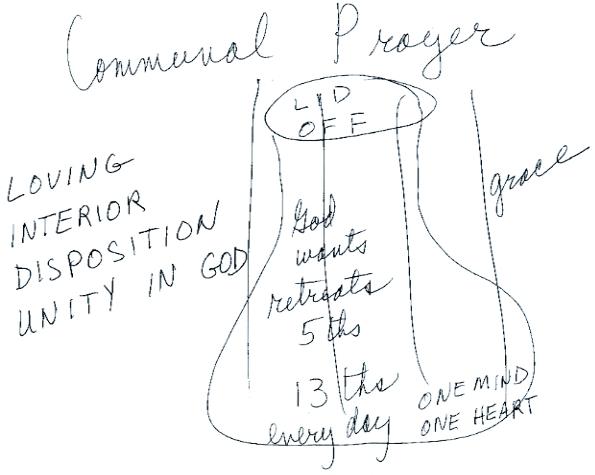 Communal Prayer
LID
OFF
LOVING
INTERIOR
DISPOSITION
UNITY IN GOD
grace
God
wants
retreats
5 ths
13 ths
every day
ONE MIND
ONE HEART